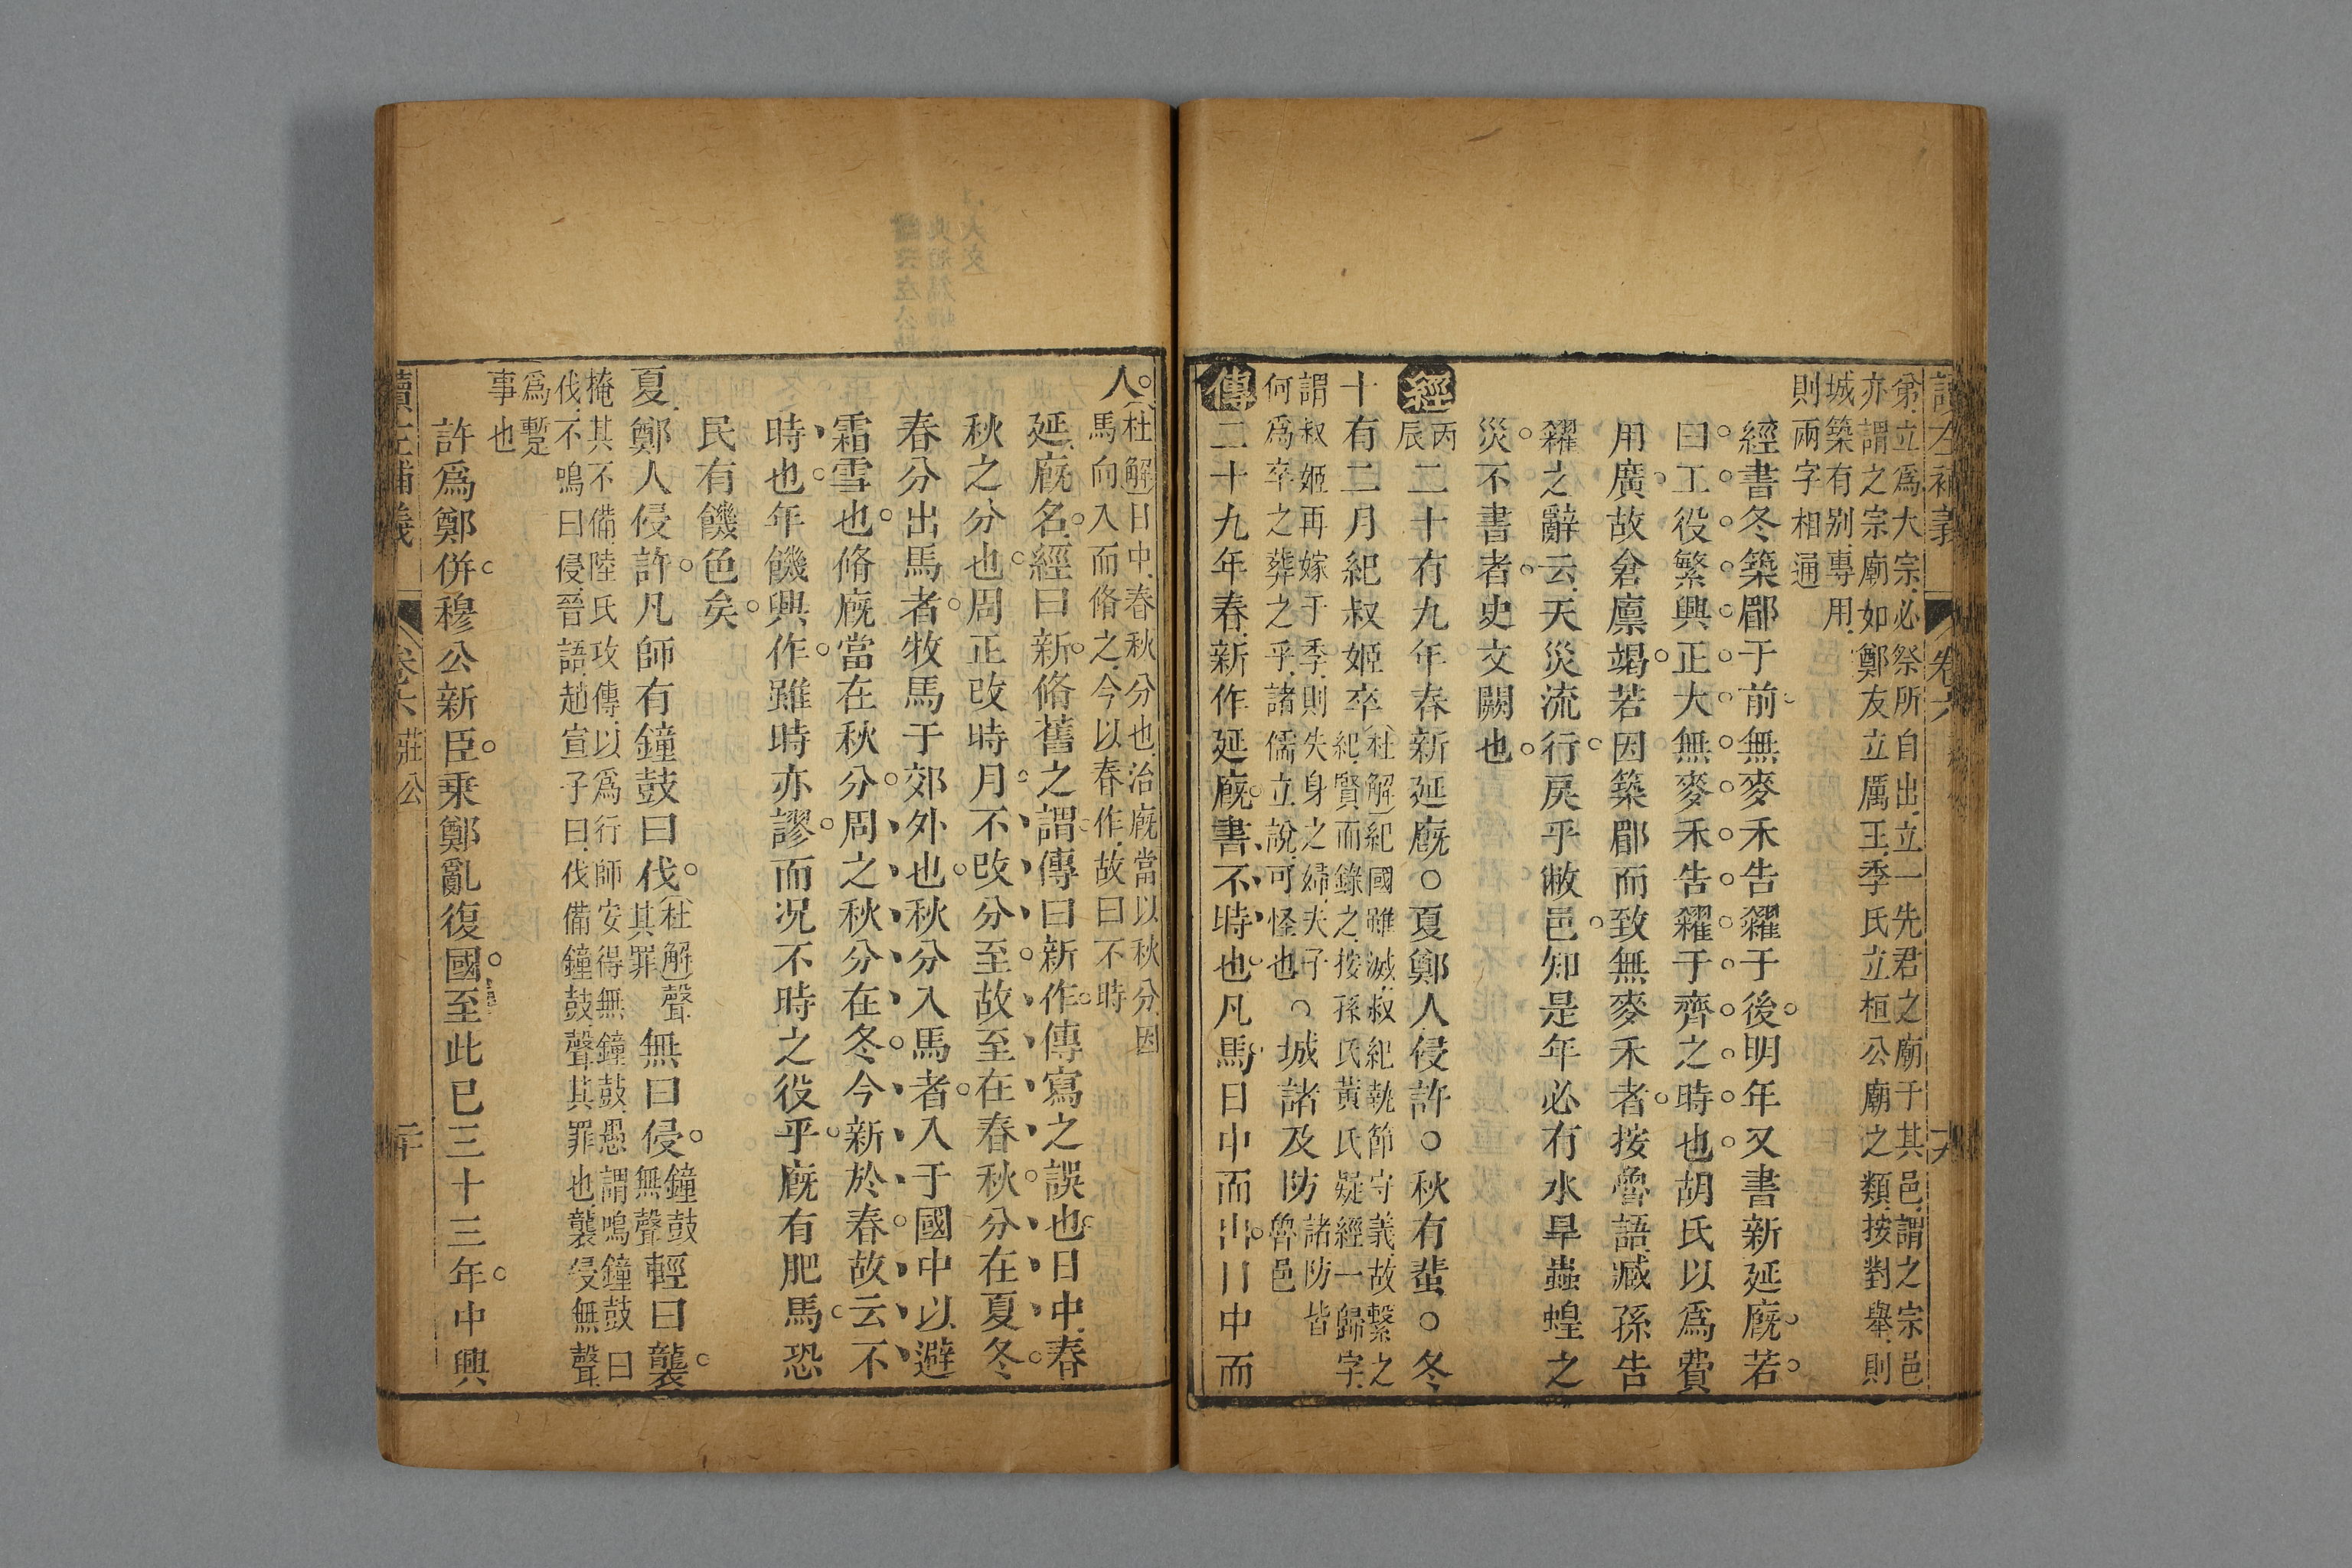 讀左補義 卷六 十九
弟立爲大宗必祭所自出立一先君之廟于其邑謂之宗邑
亦謂之宗廟如鄭友立厲王季氏立桓公廟之類按對舉則
城築有别專用
則兩字相通
經書冬築郿于前無麥禾告糴于後明年又書新延廐若
曰工役繁興正大無麥禾告糴于齊之時也胡氏以爲費
用廣故倉廩竭若因築郿而致無麥禾者按魯語臧孫告
糴之辭云天災流行戾乎敝邑知是年必有水旱蟲蝗之
災不書者史文闕也
經丙辰二十有九年春新延廐○夏鄭人侵許○秋有蜚○冬
十有二月紀叔姬卒
杜解紀國雖滅叔紀執節守義故繫之
紀賢而錄之按孫氏黃氏疑經一歸字
謂叔姬再嫁于季則失身之婦夫子
何爲卒之葬之乎諸儒立說可怪也
○城諸及防
諸防皆
魯邑
傳二十九年春新作延廐書不時也凡馬日中而出日中而
入
杜解日中春秋分也治廐當以秋分因
馬向入而脩之今以春作故曰不時
延廐名經曰新脩舊之謂傳曰新作傳寫之誤也日中春
秋之分也周正改時月不改分至故至在春秋分在夏冬
春分出馬者牧馬于郊外也秋分入馬者入于國中以避
霜雪也脩廐當在秋分周之秋分在冬今新於春故云不
時也年饑興作雖時亦謬而况不時之役乎廐有肥馬恐
民有饑色矣
夏鄭人侵許凡師有鐘鼓曰伐
杜解聲
其罪
無曰侵
鐘鼓
無聲
輕曰襲
掩其不備陸氏攻傳以爲行師安得無鐘鼓愚謂鳴鐘鼓曰
伐不鳴曰侵晉語趙宣子曰伐備鐘鼓聲其罪也襲侵無聲
爲蹔
事也
許爲鄭併穆公新臣乘鄭亂復國至此已三十三年中興
讀左補義 卷六 莊公 二十